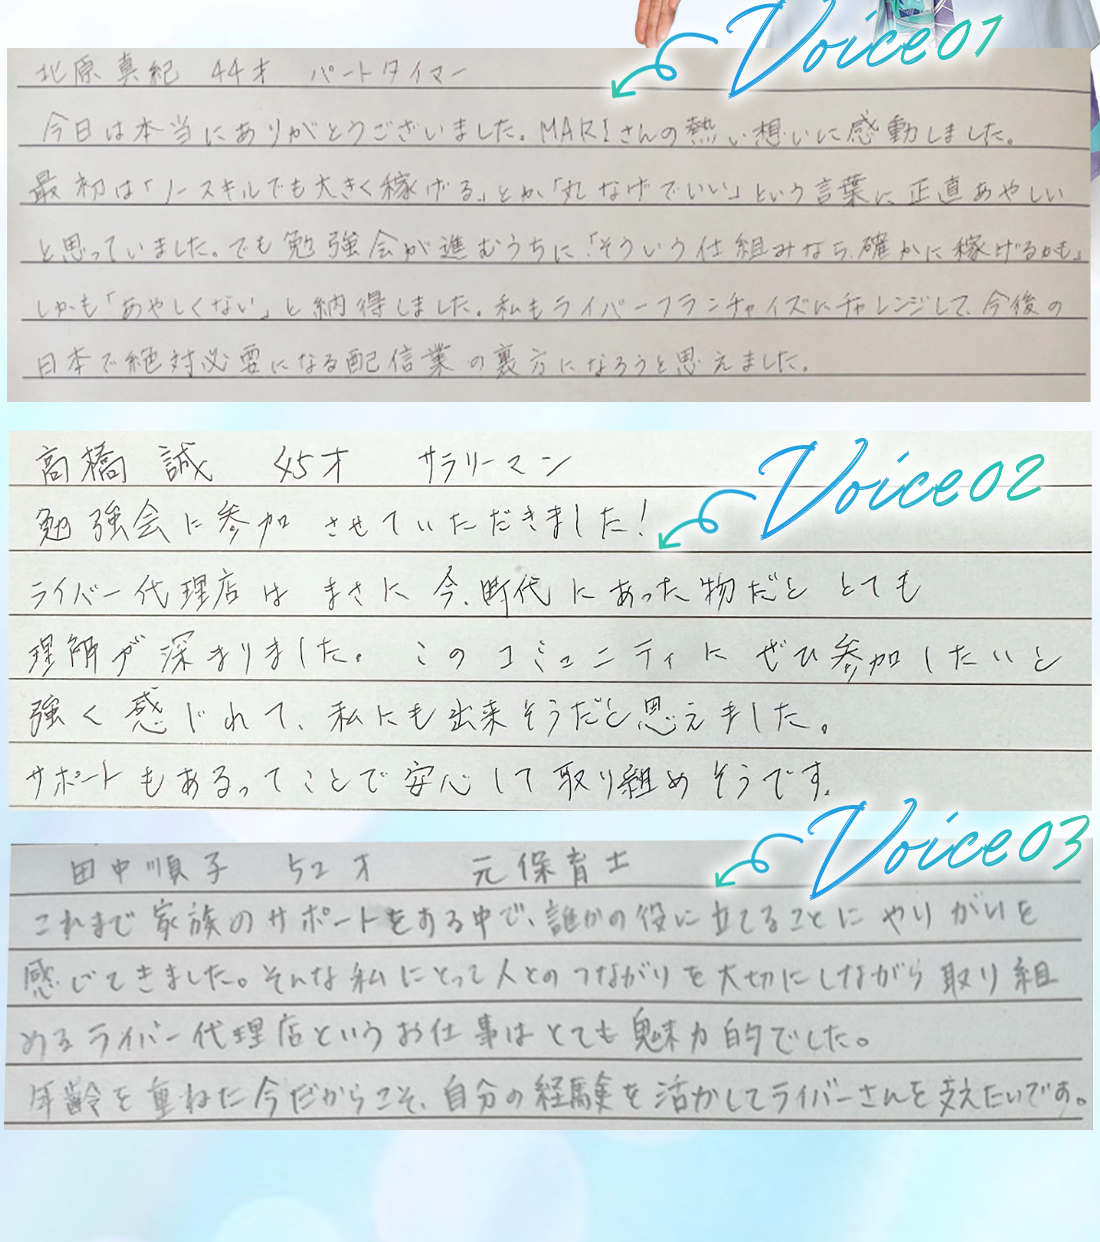 Voice01
北原真紀 44才 パートタイマー
今日は本当にありがとうございました。MARIさんの熱い想いに感動しました。
最初は「ノースキルでも大きく稼げる」とか「丸なげでいい」という言葉に正直あやしい
と思っていました。でも勉強会が進むうちに「そういう仕組みなら、確かに稼げるかも」
しかも「あやしくない」と納得しました。私もライバーフランチャイズにチャレンジして、今後の
日本で絶対必要になる配信業の裏方になろうと思えました。
Voice02
高橋 誠 45才 サラリーマン
勉強会に参加させていただきました!
ライバー代理店はまさに今、時代にあった物だととても
理解が深まりました。このコミュニティにぜひ参加したいと
強く感じれて、私にも出来そうだと思えました。
サポートもあるってことで安心して取り組めそうです。
Voice03
田中順子 52才 元保育士
これまで家族のサポートをする中で、誰かの役に立てることにやりがいを
感じてきました。そんな私にとって人とのつながりを大切にしながら取り組
めるライバー代理店というお仕事はとても魅力的でした。
年齢を重ねた今だからこそ、自分の経験を活かしてライバーさんを支えたいです。